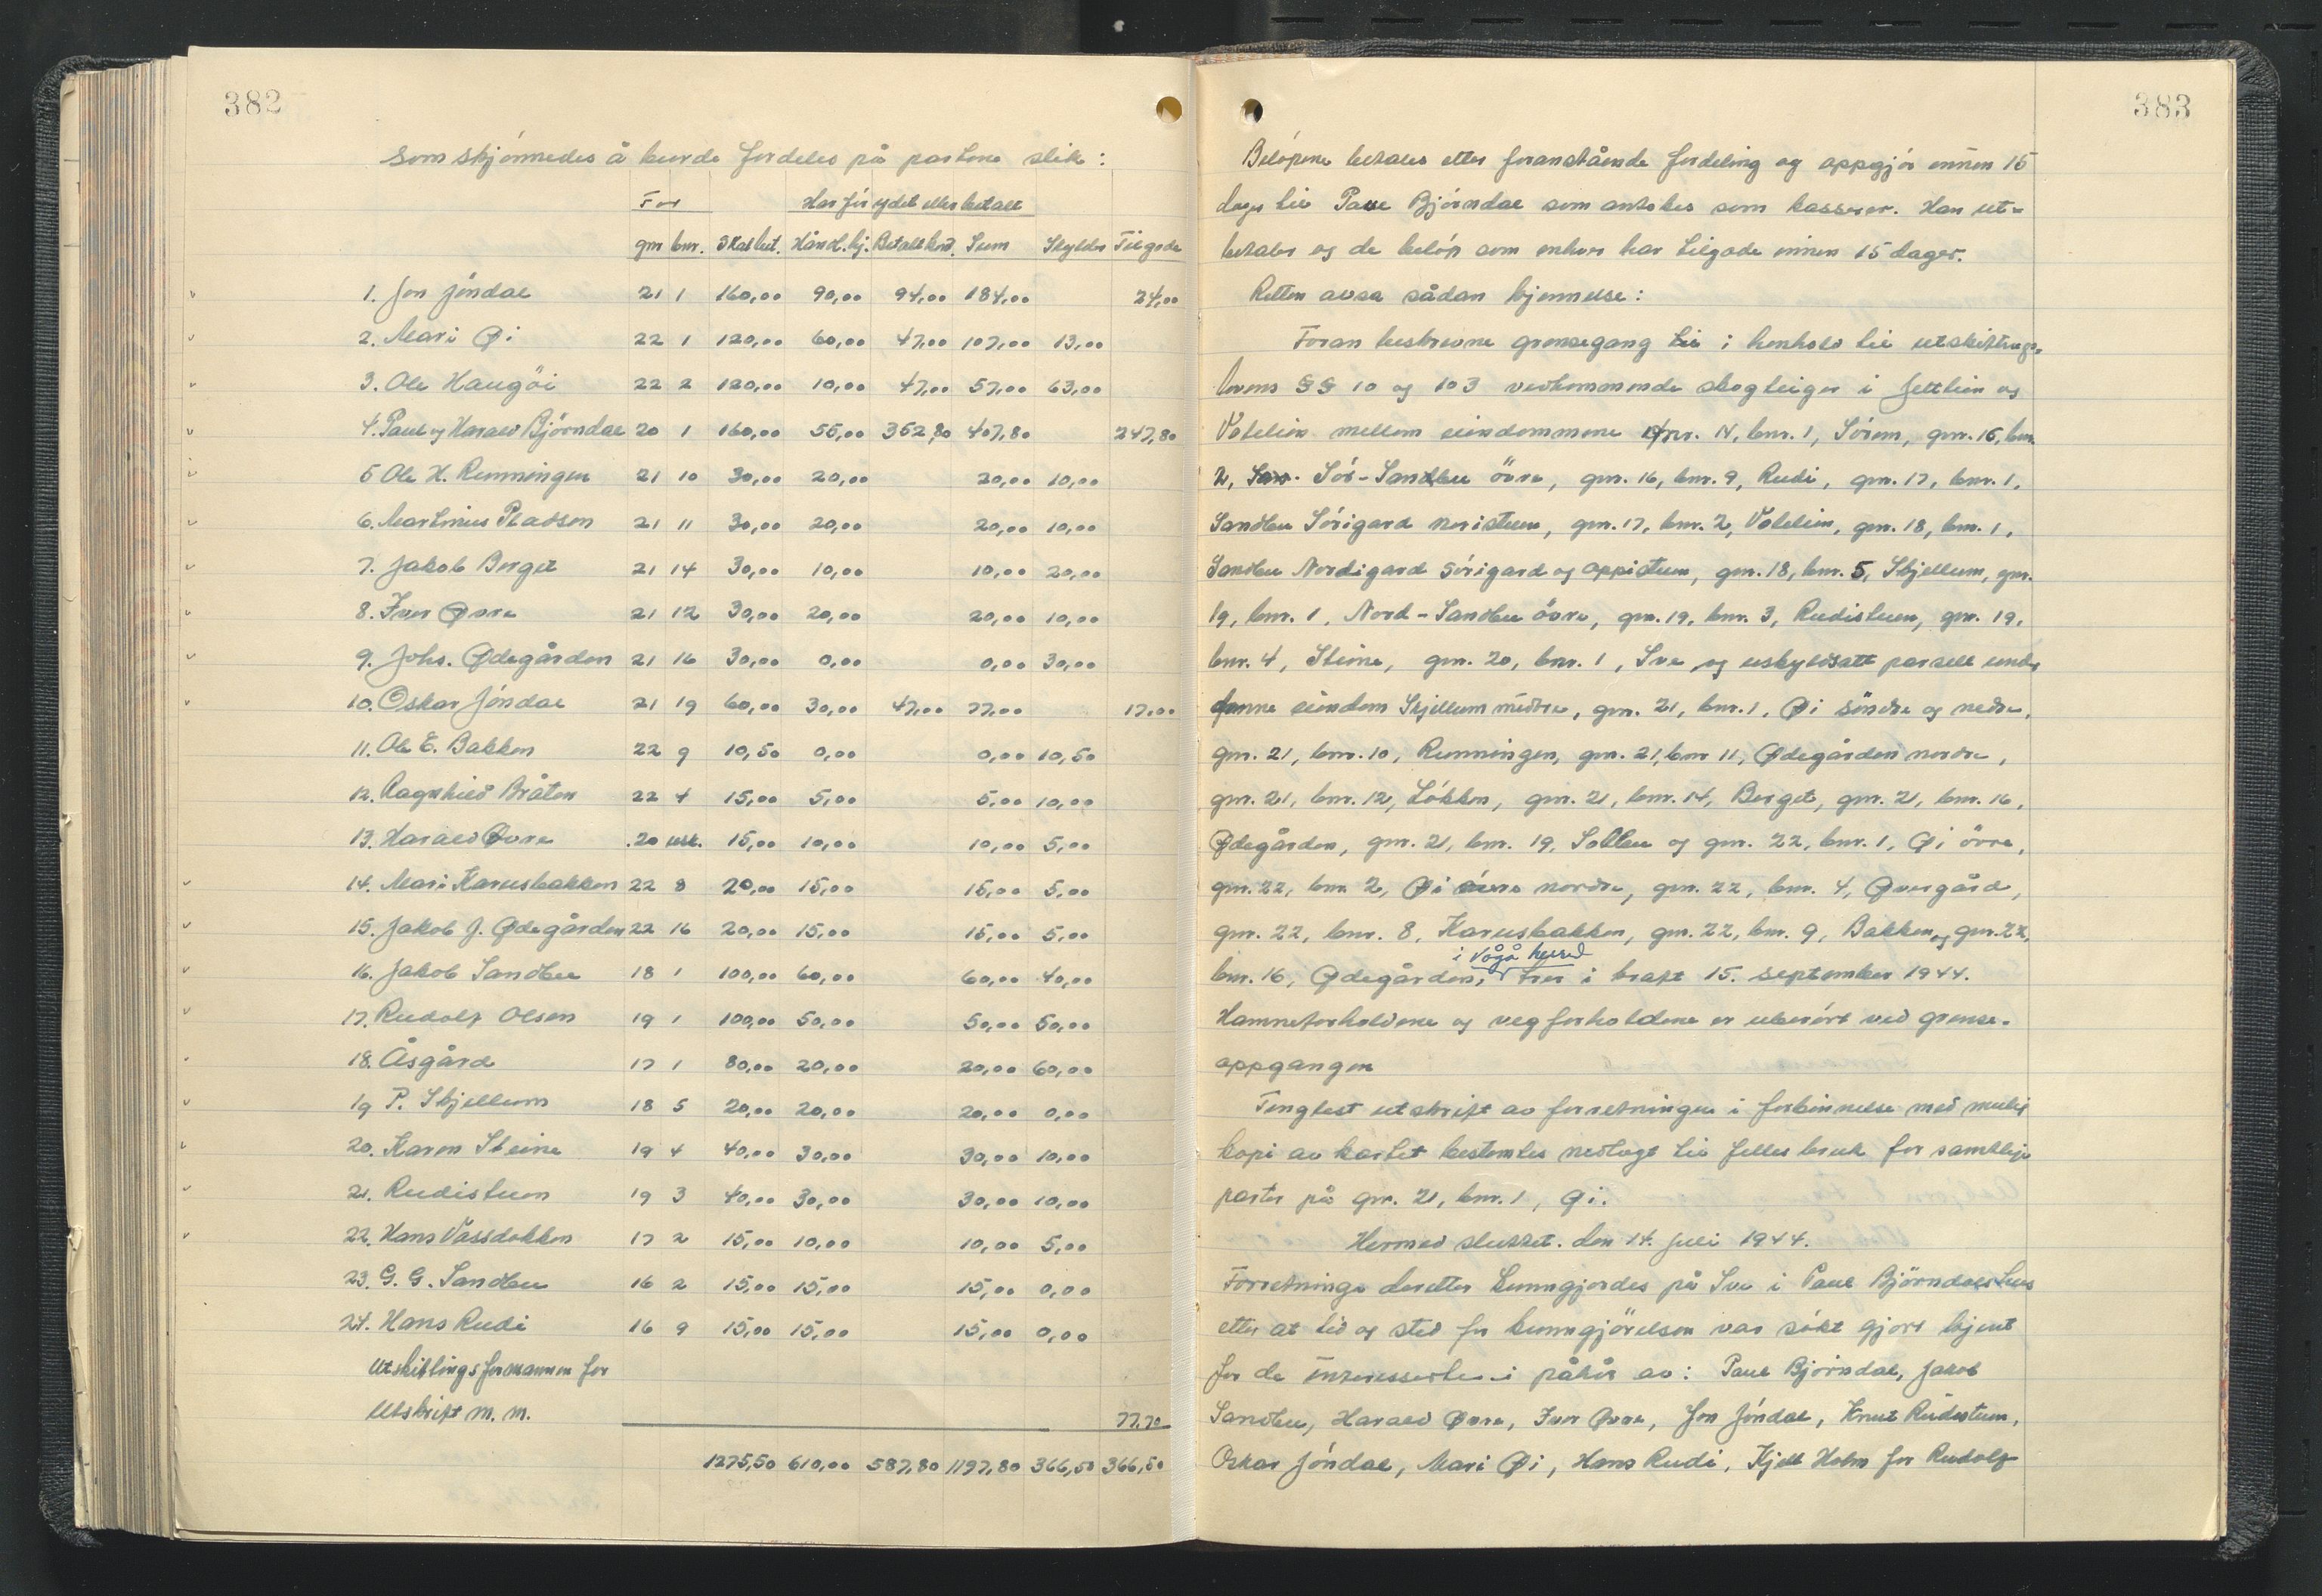 382
som skjønnedes å burde fordeles på partene slik :
For Har før ydet eller betalt
gnr bnr. Skal bet. Håndl.hj. Betalt kost. Sum Skylder Tilgode
1. Jon Jøndal 21 1 160,00 90,00 94,00 184,00 24,00
2. Mari Øi 22 1 120,00 60,00 47,00 107,00 13,00
3. Ole Haugøi 22 2 120,00 10,00 47,00 57,00 63,00
4. Paul og Harald Bjørndal 20 1 160,00 55,00 352,80 407,80 247,80
5 Ole H. Rønningen 21 10 30,00 20,00 20,00 10,00
6. Martinus Pladsen 21 11 30,00 20,00 20,00 10,00
7. Jakob Berget 21 14 30,00 10,00 10,00 20,00
8. Iver Øvre 21 12 30,00 20,00 20,00 10,00
9. Johs. Ødegården 21 16 30,00 0,00 0,00 30,00
10. Oskar Jøndal 21 19 60,00 30,00 47,00 77,00 17,00
11. Ole E. Bakken 22 9 10,50 0,00 0,00 10,50
12. Ragnhild Bråten 22 4 15,00 5,00 5,00 10,00
13. Harald Øvre 20 usk. 15,00 10,00 10,00 5,00
14. Mari Karusbakken 22 8 20,00 15,00 15,00 5,00
15. Jakob J. Ødegården 22 16 20,00 15,00 15,00 5,00
16. Jakob Sandbu 18 1 100,00 60,00 60,00 40,00
17. Rudolf Olsen 19 1 100,00 50,00 50,00 50,00
18. Åsgård 17 1 80,00 20,00 20,00 60,00
19 P. Skjellum 18 5 20,00 20,00 20,00 0,00
20. Karen Steine 19 4 40,00 30,00 30,00 10,00
21. Rudistuen 19 3 40,00 30,00 30,00 10,00
22. Hans Vassdokken 17 2 15,00 10,00 10,00 5,00
23. G. G. Sandbu 16 2 15,00 15,00 15,00 0,00
24. Hans Rudi 16 9 15,00 15,00 15,00 0,00
Utskiftingsformannen for
Utskrift m. m. 77,70
1275,50 610,00 587,80 1197,80 366,50 366,50
383
Beløpene betales etter foranstående fordeling og oppgjør innen 15
dager til Paul Bjørndal som antokes som kasserer. Han ut-
betaler og de beløp som enhver har tilgode innen 15 dager.
Retten avsa sådan kjennelse :
Foran beskrevne grensegang til i henhold til utskiftings-
lovens §§ 10 og 103 vedkommende skogteiger i Jettlien og
Volelien mellom eiendommene gnr. 14, bnr. 1, Sørem, gnr. 16, bnr.
2, Sør-Sandbu övre, gnr. 16, bnr. 9, Rudi, gnr. 17, bnr. 1,
Sandbu Sørigard noristuen, gnr. 17, bnr. 2, Volelien, gnr. 18, bnr. 1,
Sandbu Nordigard sørigard og oppistuen, gnr. 18, bnr. 5, Skjellum, gnr.
19, bnr. 1, Nord-Sandbu övre, gnr. 19, bnr. 3, Rudistuen, gnr. 19,
bnr. 4, Steine, gnr. 20, bnr. 1, Sve og uskyldsatt parsell under
denne eiendom Skjellum midtre, gnr. 21, bnr. 1, Øi söndre og nedre,
gnr. 21, bnr. 10, Rønningen, gnr. 21, bnr 11, Ødegården nordre,
gnr. 21, bnr. 12, Løkken, gnr. 21, bnr. 14, Berget, gnr. 21, bnr. 16,
Ødegården, gnr. 21, bnr. 19, Solbu og gnr. 22, bnr. 1, Øi övre,
gnr. 22, bnr. 2, Øi övre nordre, gnr. 22, bnr. 4, Øvergård,
gnr. 22, bnr. 8, Karusbakken, gnr. 22, bnr. 9, Bakken og gnr. 22,
i Vågå herred
bnr. 16, Ødegården, trer i kraft 15. september 1944.
Hamneforholdene og vegforholdene er uberørt ved grense-
oppgangen
Tinglest utskrift av forretningen i forbinnelse med mulig
kopi av kartet bestemtes nedlagt til felles bruk for samtlige
parter på gnr. 21, bnr. 1, Øi.
Hermed sluttet. den 14. juli 1944.
Forretninga deretter kunngjordes på Sve i Paul Bjørndals hus
etter at tid og sted for kunngjörelsen var søkt gjort kjent
for de interesserte i påhør av : Paul Bjørndal, Jakob
Sandbu, Harald Øvre, Iver Øvre, Jon Jøndal, Knut Rudistuen,
Oskar Jøndal, Mari Øi, Hans Rudi, Kjell Holm for Rudolf